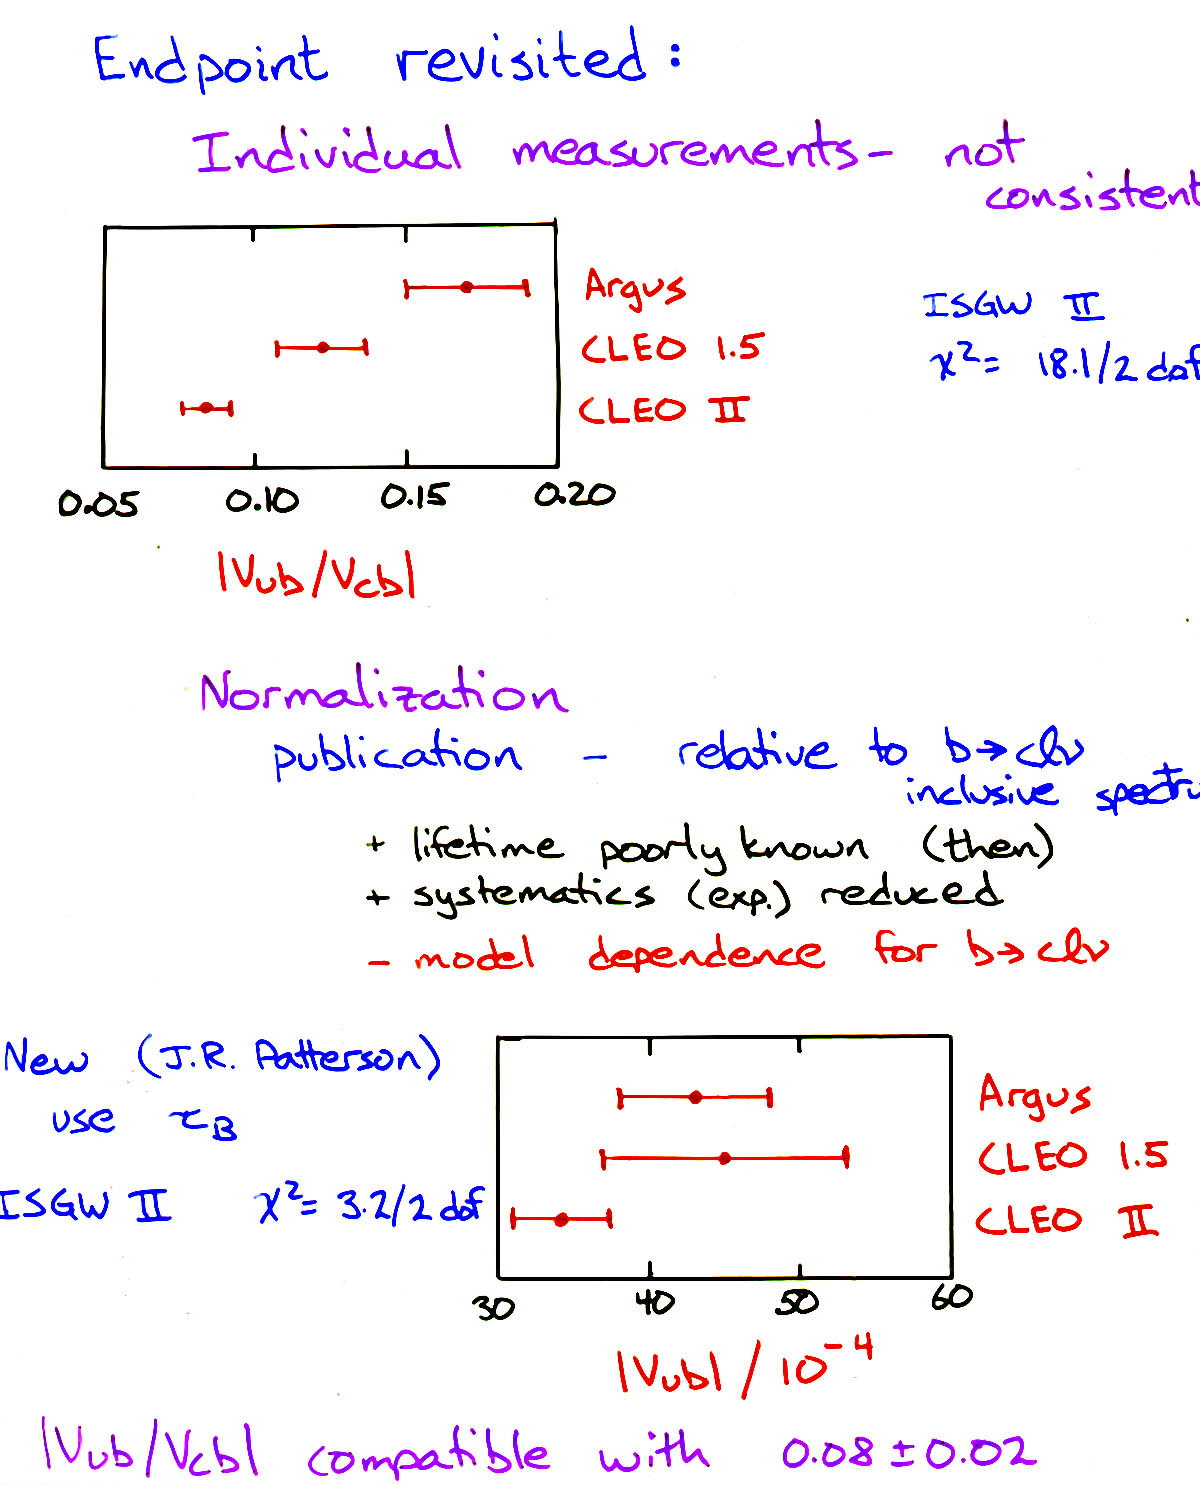 Endpoint revisited:
Individual measurements - not
consistent
Argus
CLEO 1.5
CLEO II
ISGW II
χ²= 18.1/2 dof
0.05 0.10 0.15 0.20
|Vub/Vcb|
Normalization
publication - relative to b→clν
inclusive
+ lifetime poorly known (then)
+ systematics (exp.) reduced
- model dependence for b→clν
New (J.R. Patterson)
use τB
ISGW II χ²= 3.2/2 dof
Argus
CLEO 1.5
CLEO II
30 40 50 60
|Vub| / 10⁻⁴
|Vub/Vcb| compatible with 0.08 ± 0.02